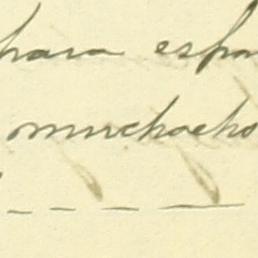 para espa
muchacho